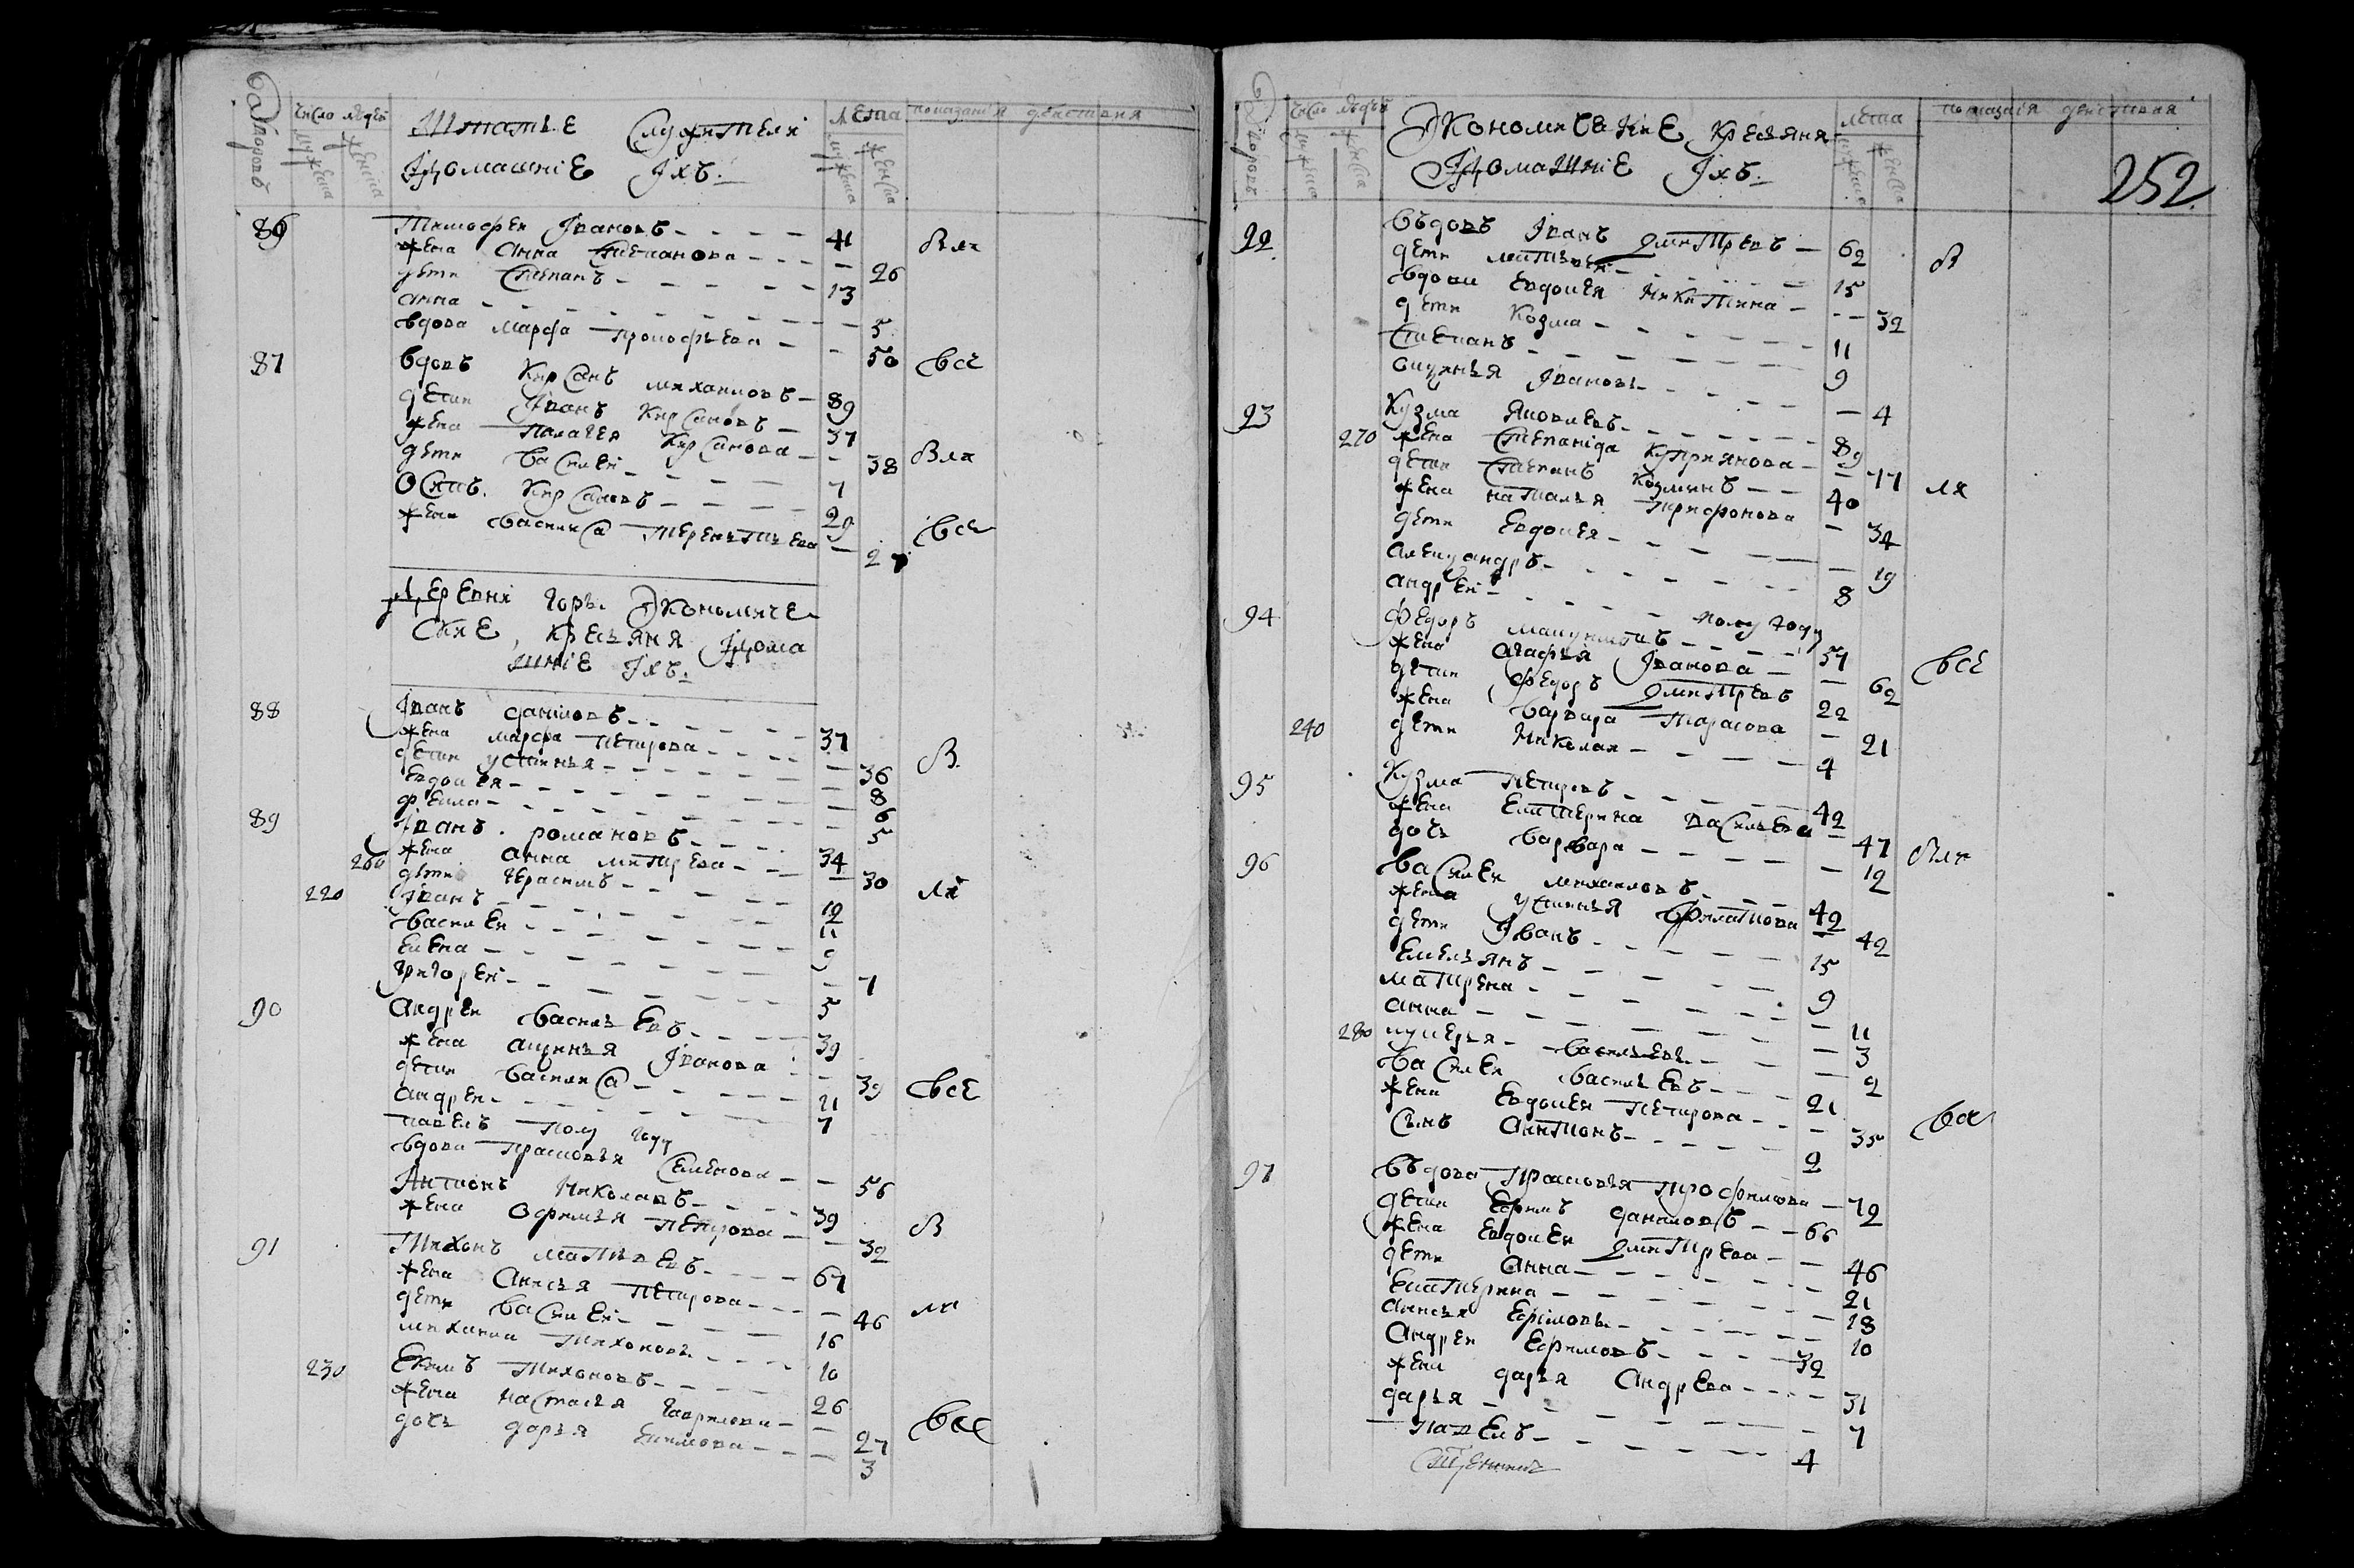 Дворовъ
число людей
мужеска
женска
Штатные Служители
Ідомашніе Іхъ.
лета
мужеска
женска
показанія действия
86 Тимофеи Івановъ 41
жена Анна Степанова 26
дети Степанъ 13
анна 5
вдова Марфа Прокофьева 50
87 вдовъ Кирсанъ михаиловъ 89 все
дети Іванъ Кирсановъ 37
жена Палагея Кирсанова 38
дети василеи 7
Осипъ Кирсановъ 29
жена василиса терентьева 27 все
Деревни Горы Экономиче
ские, кресьяня Ідома
шніе Іхъ.
88 Іванъ даниловъ 37
жена марфа петрова 36 В
дети устинья 8
евдокея 6
фекла 5
89 Іванъ романовъ 34
260 жена анна митрева 30
дети герасимъ 12
220 Іванъ 11
василеи 9
елена 7
григореи 5
90 Андреи васильевъ 39
жена аксинья Іванова 39
дети василиса 11 все
андреи 7
павелъ полу году
вдова прасковья Семенова 56
Антонъ Николаевъ 39
жена офимья петрова 32 В
91 Тихонъ матвеевъ 67
жена Анисья петрова 46
дети василеи 16
михаила тихоновъ 10
230 Екимъ тихоновъ 26
жена настасья гаврилова 27 все
дочь дарья екимова 3
Дворовъ
число людей
мужеска
женска
Экономические кресьяня
Ідомашніе Іхъ.
лета
мужеска
женска
показанія действия
252
92 въдовъ Іванъ дмитревъ 62 В
дети матвеи 15
вдова евдокея никитина 32
дети козма 11
степанъ 9
аксинья Іванова 4
93 Кузма яковлевъ 89
270 жена степанида куприянова 77
дети степанъ козминъ 40
жена наталья трифонова 34
дети евдокея 19
александръ 8
андреи полу году
94 федоръ 57
жена агафья Іванова 62 все
дети федоръ дмитревъ 22
жена варвара тарасова 21
240 дети николаи 4
95 Кузма петровъ 42
жена катерина васильева 47
дочь варвара 12
96 василеи михаиловъ 42
жена устинья филатова 42
дети Іванъ 15
емельянъ 9
матрена 11
анна 3
280 лукерья васильева 2
василеи васильевъ 21
жена евдокея петрова 35 все
сынъ антонъ 2
97 въдова прасковья трофимова 72
дети ефимъ даниловъ 66
жена евдокея дмитрева 46
дети анна 21
катерина 18
анисья ефимова 10
андреи ефимовъ 32
жена дарья андрева 31
дарья 7
павелъ 4